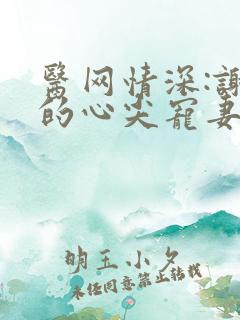 醫网情深:谢
的心尖宠妻
明玉小夕
未经同意禁止转载